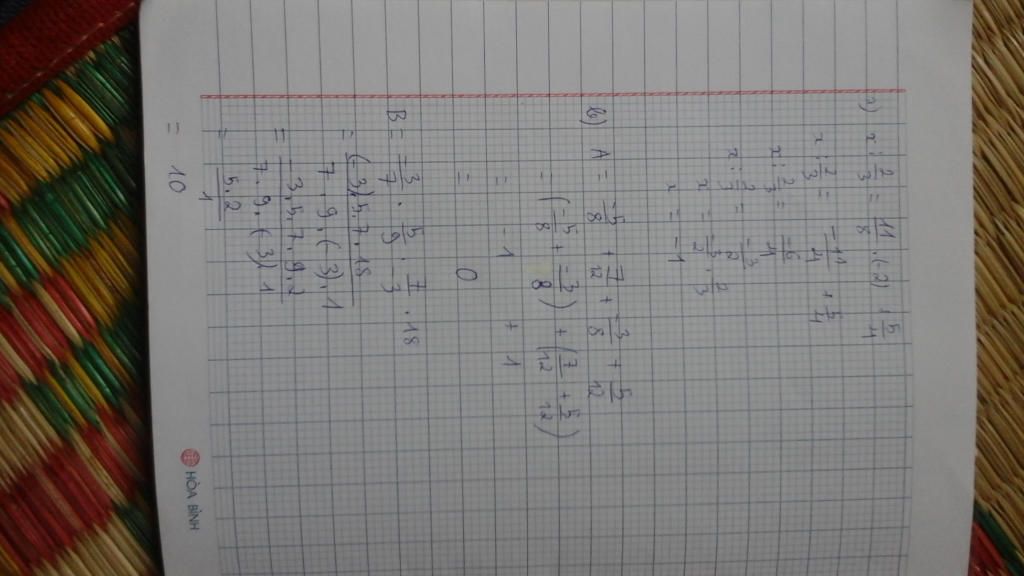 a) x : 2/3 = 11/8 . (-2) + 5/4
x : 2/3 = -11/4 + 5/4
x : 2/3 = -6/4
x : 2/3 = -3/2
x = -3/2 . 2/3
x = -1
b) A = -5/8 + 7/12 + -3/8 + 5/12
= (-5/8 + -3/8) + (7/12 + 5/12)
= -1 + 1
= 0
B = -3/7 . 5/9 . 7/-3 . 18
= (-3).5.7.18 / 7.9.(-3).1
= -3.5.7.9.2 / 7.9.(-3).1
= 5.2 / 1
= 10
HÒA BÌNH